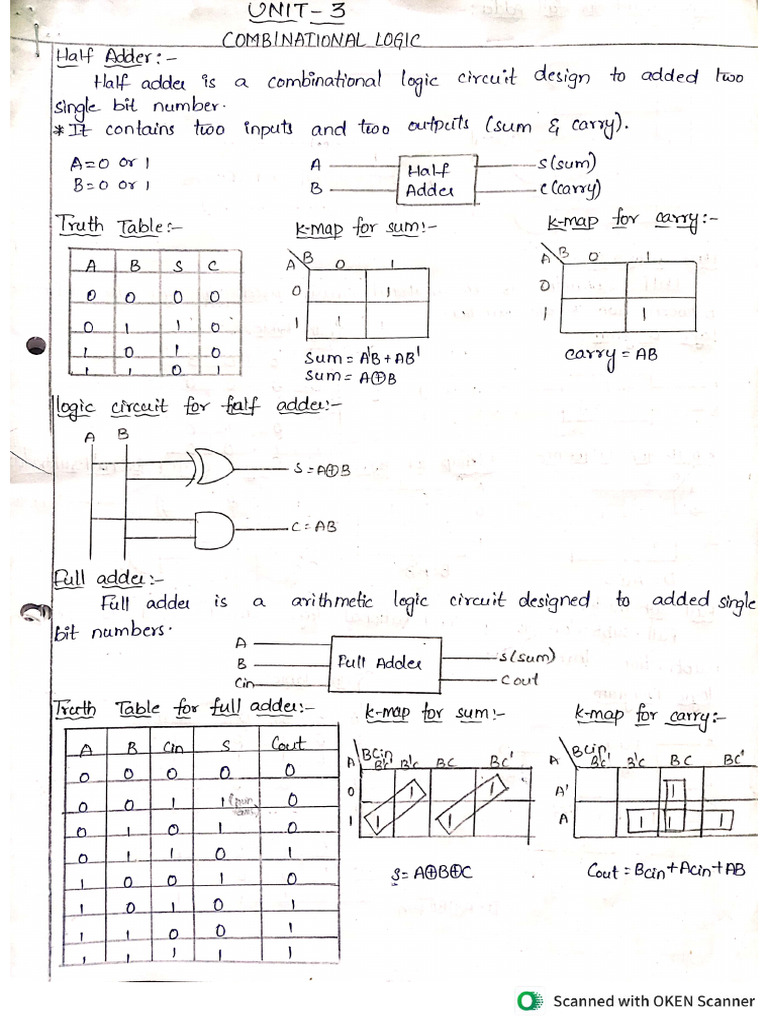 UNIT-3
COMBINATIONAL LOGIC
Half Adder:-
Half adder is a combinational logic circuit design to added two
single bit number.
*It contains two inputs and two outputs (sum & carry).
A=0 or 1
B=0 or 1
A
B
Half
Adder
S(sum)
C(carry)
Truth Table:-
A B S C
0 0 0 0
0 1 1 0
1 0 1 0
1 1 0 1
k-map for sum:-
A B 0 1
0 1
1 1
Sum = A'B + AB'
Sum = A⊕B
k-map for carry:-
A B 0 1
0
1 1
carry = AB
logic circuit for half adder:-
A B
S = A⊕B
C = AB
Full adder:-
Full adder is a arithmetic logic circuit designed to added single
bit numbers.
A
B
Cin
Full Adder
S(sum)
Cout
Truth Table for full adder:-
A B Cin S Cout
0 0 0 0 0
0 0 1 1 0
0 1 0 1 0
0 1 1 0 1
1 0 0 1 0
1 0 1 0 1
1 1 0 0 1
1 1 1 1 1
k-map for sum:-
A BCin
B'C' B'C BC BC'
0 1 1
1 1 1
S = A⊕B⊕C
k-map for carry:-
A BCin
B'C' B'C BC BC'
A' 1
A 1 1 1
Cout = Bcin + Acin + AB
Scanned with OKEN Scanner